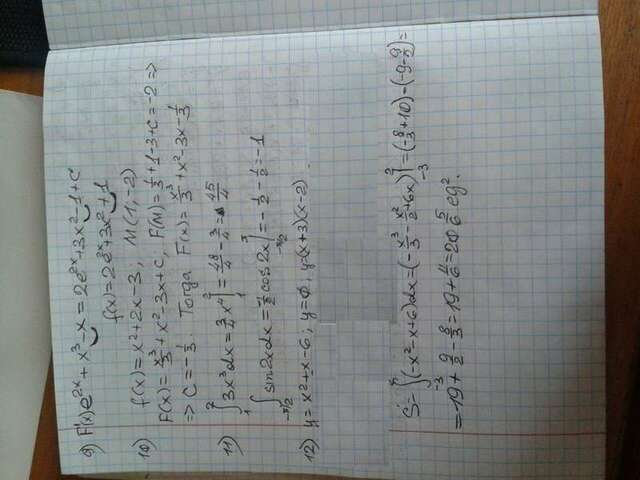 9) F'(x) e^{2x} + x³ - x = 2e^{2x} + 3x² - 1 + C
f(x) = 2e^{2x} + 3x² + 1
10) f(x) = x² + 2x - 3, M(1; -2)
F(x) = x³/3 + x² 3x + C, F(M) = 1/3 + 1 - 3 + C = -2 ⇒
⇒ C = -1/3. Тогда F(x) = x³/3 + x² - 3x - 1/3
11) ∫₁² 3x³dx = 3/4 x⁴|₁² = 48/4 - 3/4 = 45/4
∫ sin2xdx = -1/2 cos2x| = -1/2 - 1/2 = -1
12) y = x² + x - 6; y = 0. y = (x+3)(x-2).
S = ∫₋₃² (-x² - x + 6)dx = (-x³/3 - x²/2 + 6x)|₋₃² = (-8/3 + 10) - (-9 - 9/2) =
= 19 + 9/2 - 8/3 = 19 + 11/6 = 20 5/6 ед².